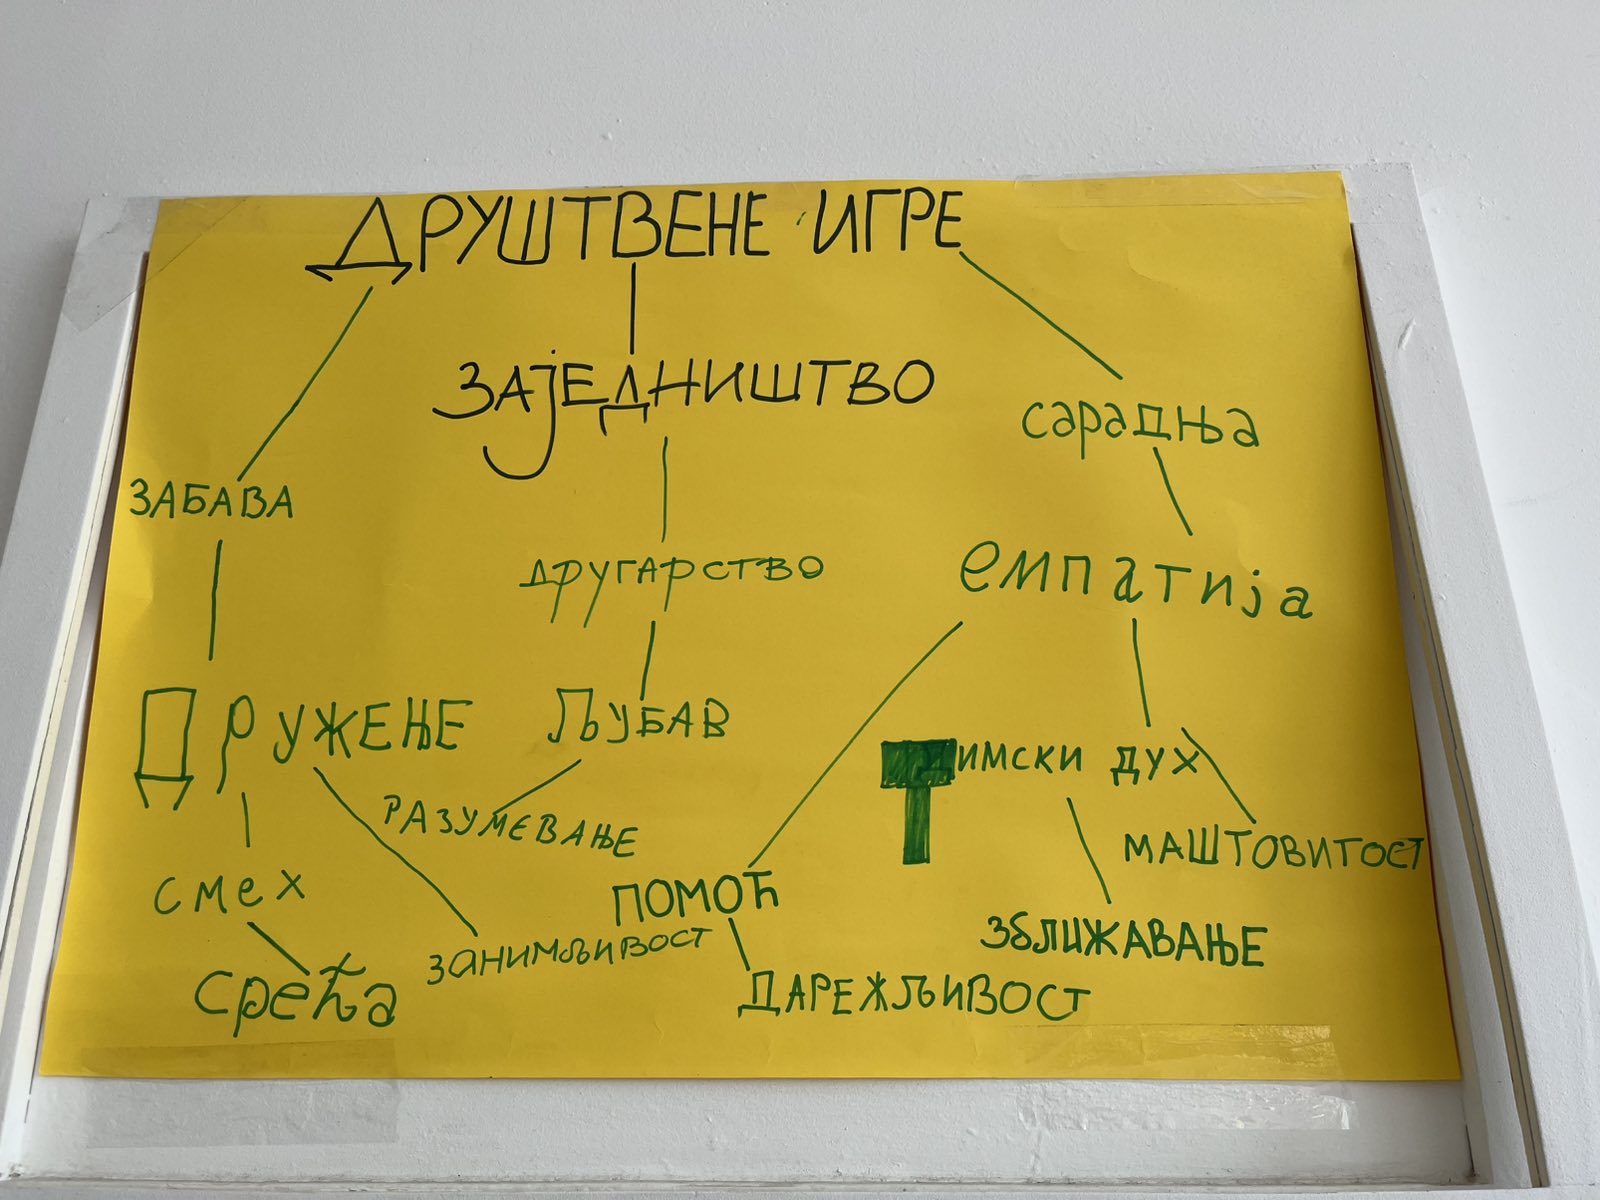 ДРУШТВЕНЕ ИГРЕ
ЗАЈЕДНИШТВО
сарадња
ЗАБАВА
другарство
емпатија
ДРУЖЕЊЕ
ЉУБАВ
Тимски дух
РАЗУМЕВАЊЕ
МАШТОВИТОСТ
смех
ПОМОЋ
ЗБЛИЖАВАЊЕ
ЗАНИМЉИВОСТ
срећа
ДАРЕЖЉИВОСТ